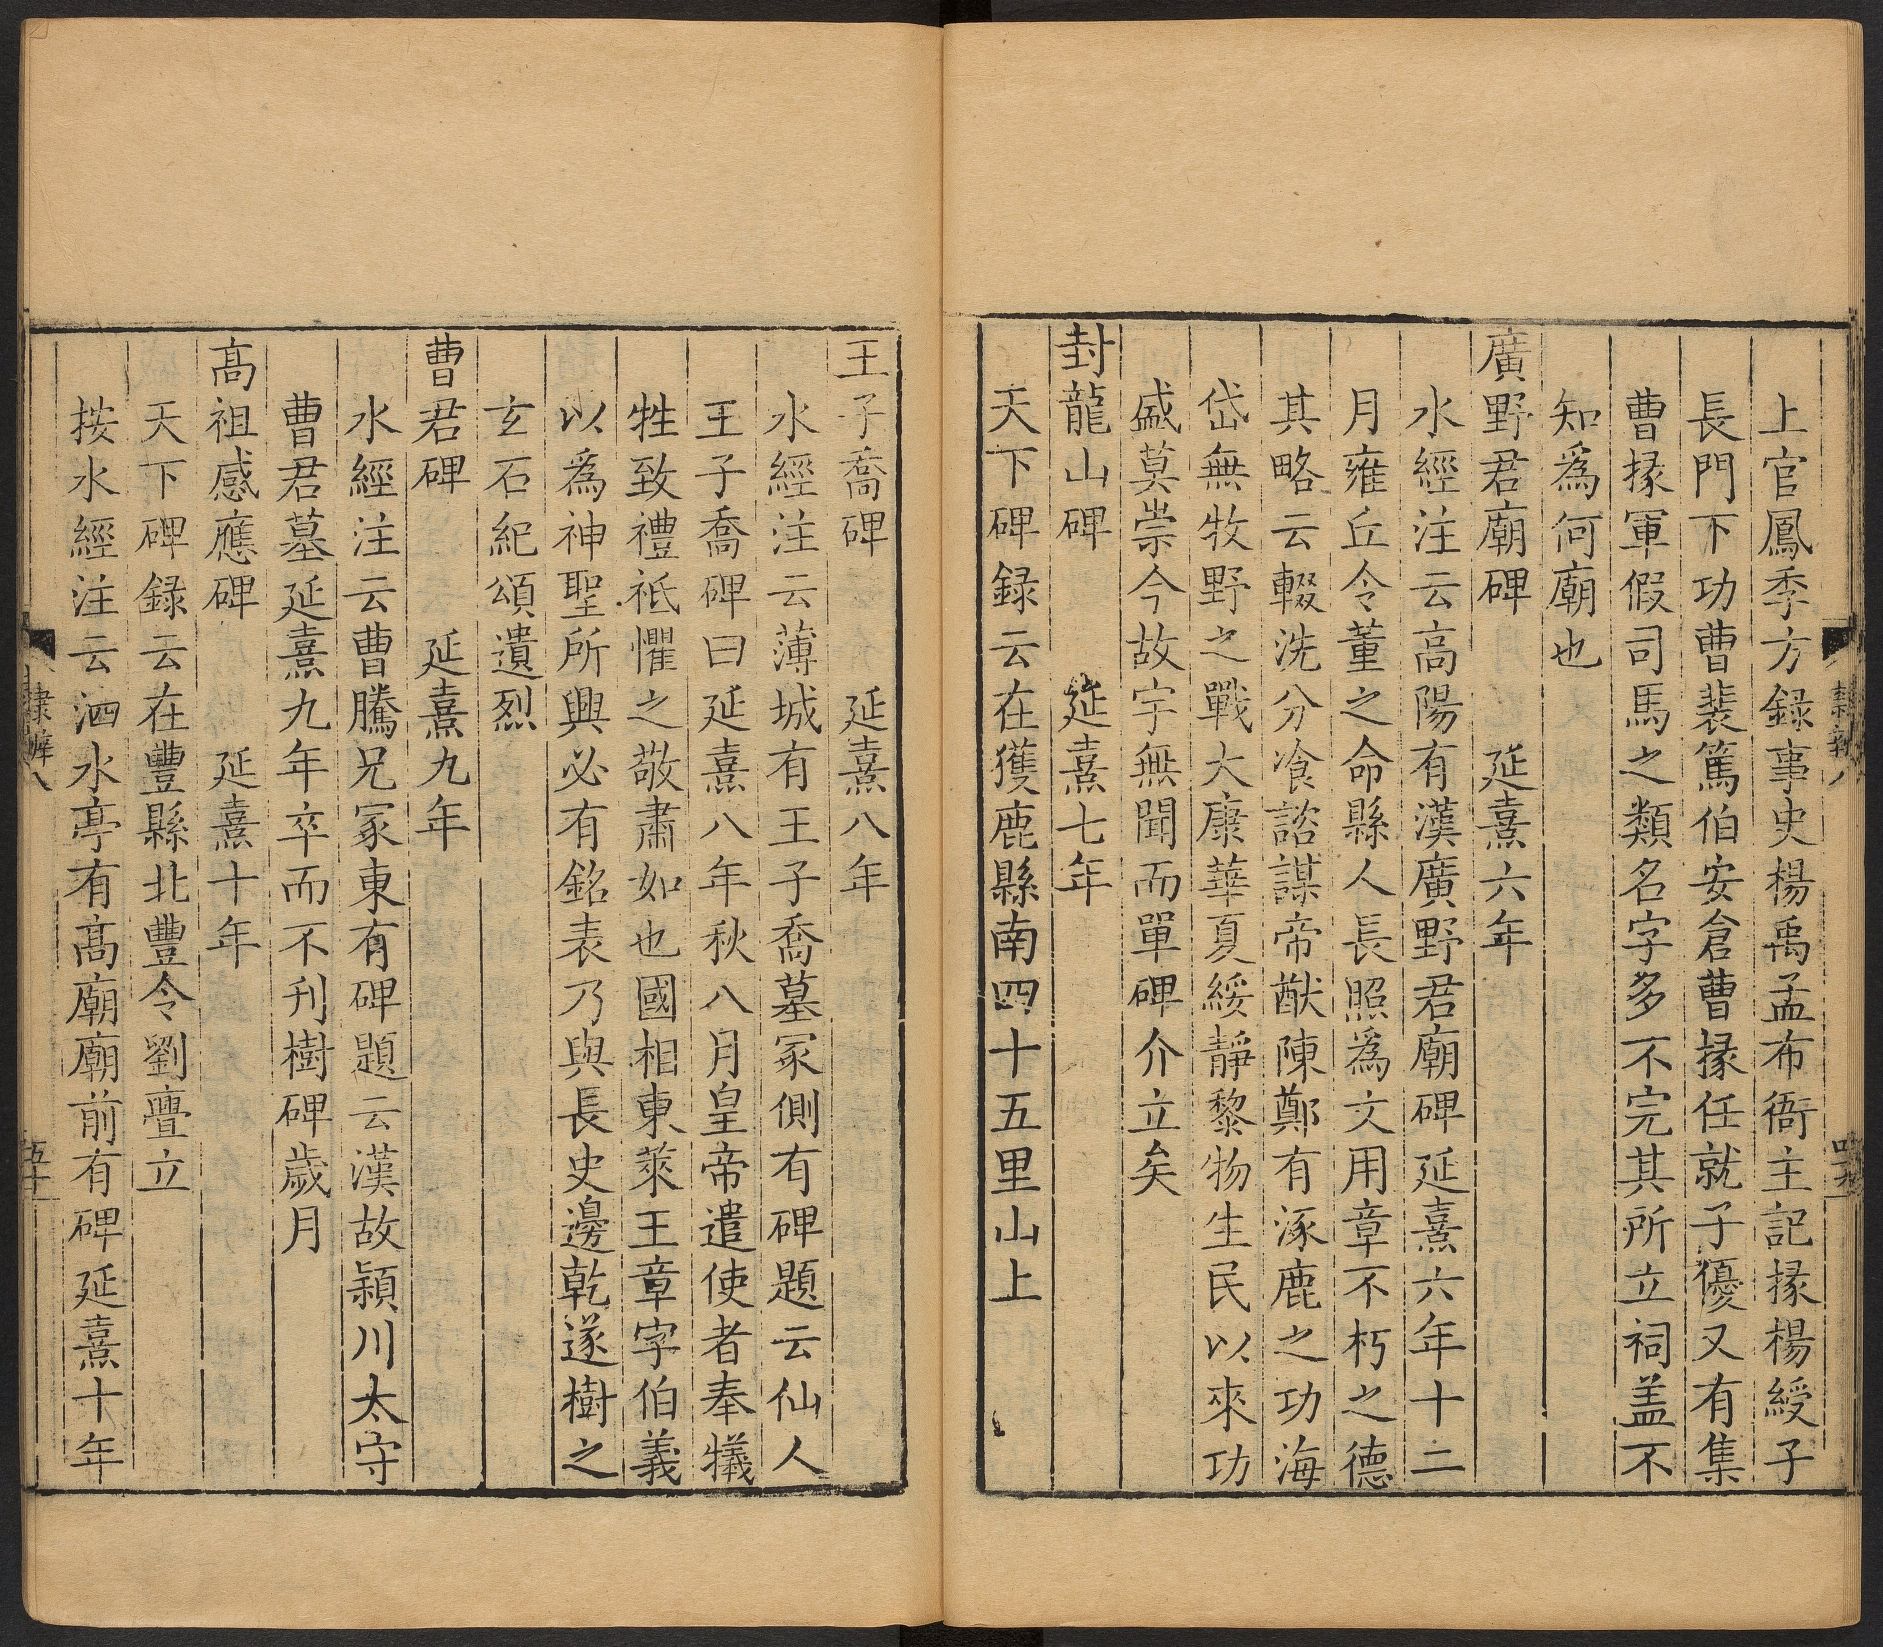 上官鳳季方録事史楊禹孟布衙主記掾楊綬子
長門下功曹裴篤伯安倉曹掾任就子優又有集
曹掾軍假司馬之類名字多不完其所立祠盖不
知爲何廟也
廣野君廟碑 延熹六年
水經注云高陽有漢廣野君廟碑延熹六年十二
月雍丘令董之命縣人長照爲文用章不朽之德
其略云輟洗分飡諮謀帝猷陳鄭有涿鹿之功海
岱無牧野之戰大康華夏綏靜黎物生民以來功
盛莫崇今故宇無聞而單碑介立矣
封龍山碑 延熹七年
天下碑録云在獲鹿縣南四十五里山上
隸辨八
王子喬碑 延熹八年
水經注云薄城有王子喬墓冢側有碑題云仙人
王子喬碑曰延熹八年秋八月皇帝遣使者奉犧
牲致禮祇懼之敬肅如也國相東萊王章字伯義
以爲神聖所興必有銘表乃與長史邊乾遂樹之
玄石紀頌遺烈
曹君碑 延熹九年
水經注云曹騰兄冢東有碑題云漢故潁川太守
曹君墓延熹九年卒而不刊樹碑歲月
高祖感應碑 延熹十年
天下碑録云在豐縣北豐令劉亹立
按水經注云泗水亭有高廟廟前有碑延熹十年
隸辨八